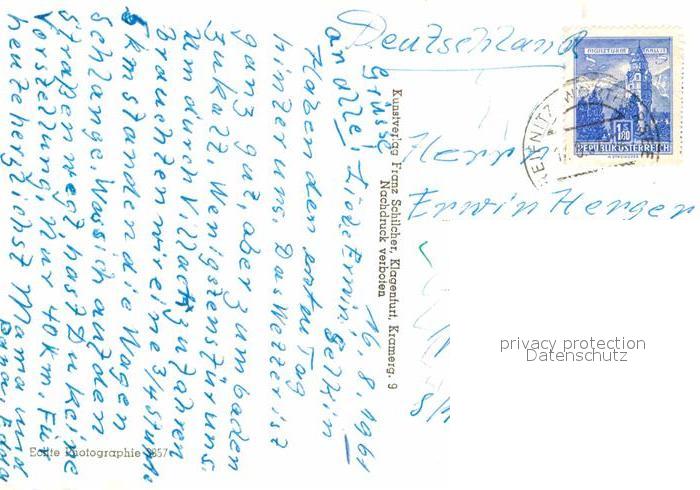 16.8.1961
Liebe Ermin, Gerlin
Haben den ersten Tag
hinter uns. Das Wetter ist
ganz gut, aber zum baden
zu kalt Wenigstens für uns.
Um durch Villach zu fahren
brauchten wir eine 3/4 Stunde
5 km standen die Wagen
Schlange. Was sich auf den
Straßen wegt, hast Du keine
Vorstellung, nur 40 km. Für
heute herzlichst Mama und
Papa, Edda
Grüsse
an alle!
Kunstverlag Franz Schilcher, Klagenfurt, Kramerg. 9
Nachdruck verboten
Echte Photographie 857
Deutschland
MÜNZTURM HALL i.T.
1.80
REPUBLIK ÖSTERREICH
KEUTSCHACH
Herrn
Erwin Hergen
privacy protection
Datenschutz